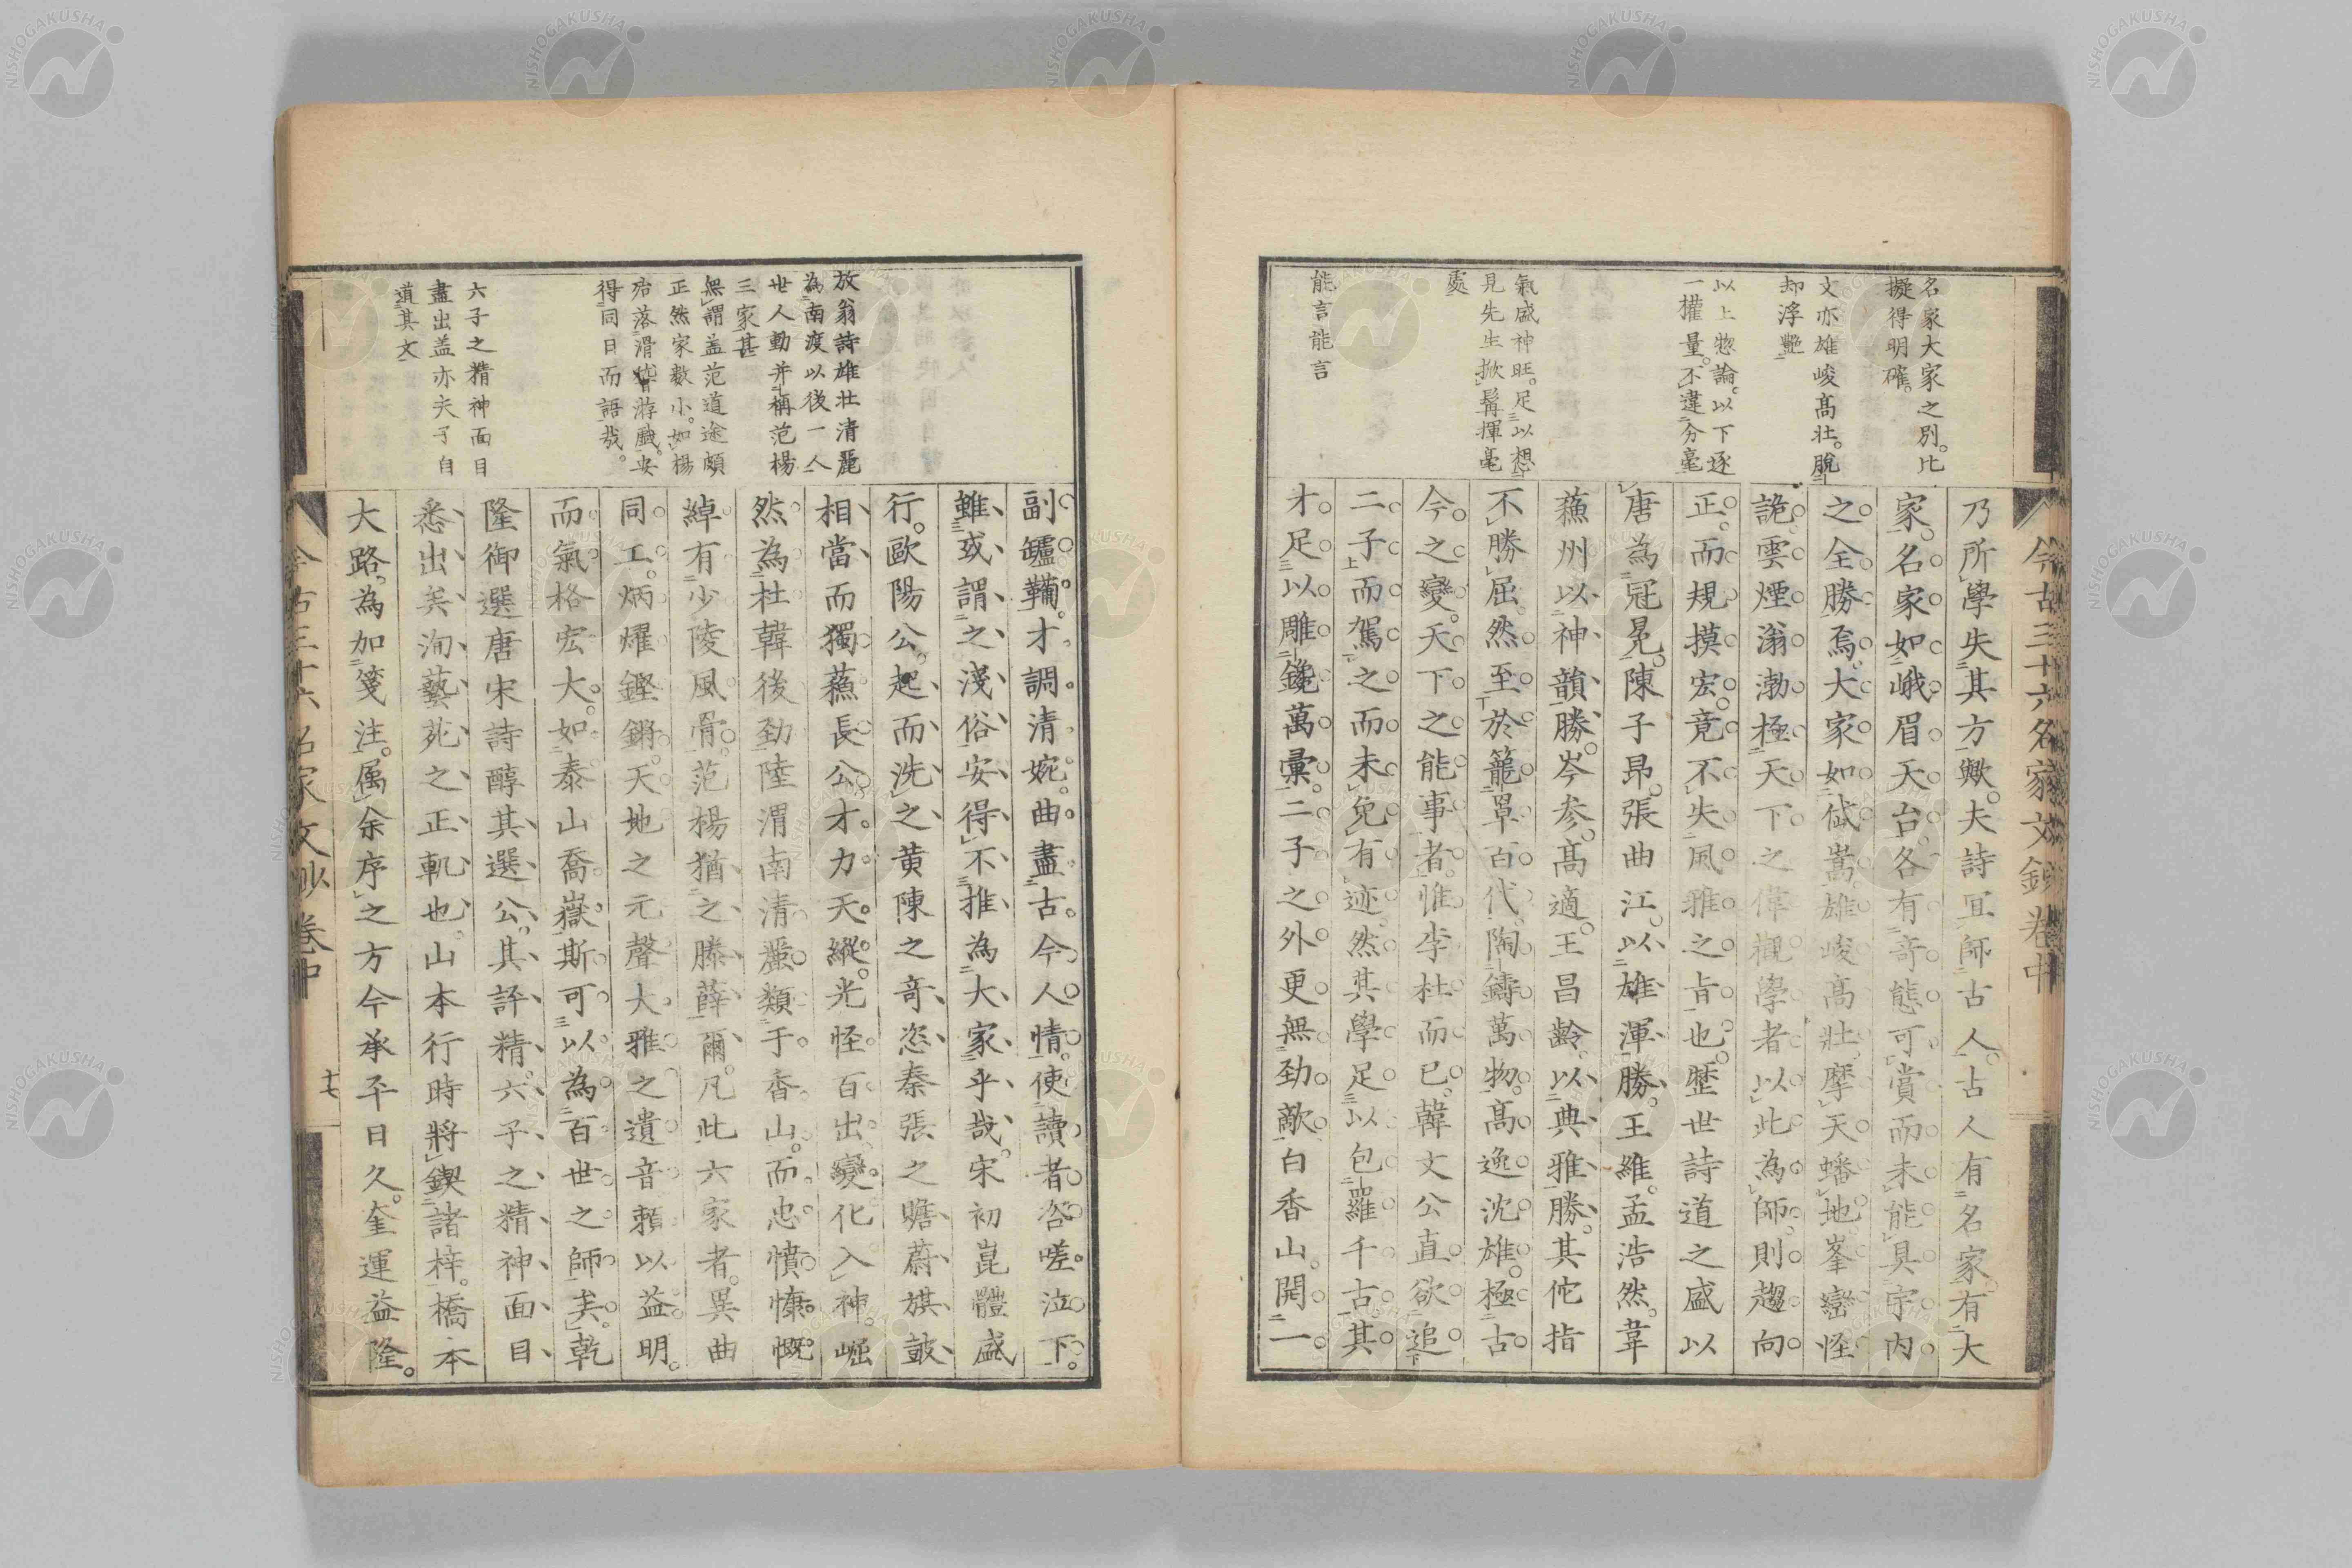 今古三十六名家文鈔卷中
名家大家之別。比
擬得明確。
文亦雄峻高壯。脫
却浮艷
以上惣論。以下逐
一權量。不違分毫
氣盛神旺。足以想
見先生掀髯揮毫
處
能言能言
乃所學失其方歟。夫詩宜師古人。古人有名家。有大
家。名家如峨眉天台。各有奇態可賞而未能具宇内
之全勝焉。大家如岱嵩。雄峻高壯。摩天蟠地。峯巒怪
詭。雲煙滃渤。極天下之偉觀。學者以此為師。則趨向
正。而規摸宏。竟不失風雅之旨也。歷世詩道之盛以
唐為冠冕。陳子昂。張曲江。以雄渾勝。王維。孟浩然。韋
蘓州以神韻勝。岑參。高適。王昌齡。以典雅勝。其佗指
不勝屈。然至於籠罩百代。陶鑄萬物。高逸沈雄。極古
今之變。天下之能事者。惟李杜而已。韓文公直欲追
二子而駕之。而未免有迹。然其學足以包羅千古。其
才足以雕鎪萬彙。二子之外更無勁敵。白香山。開一
放翁詩雄壯清麗
為南渡以後一人
世人動并稱范楊
三家甚
無謂。盖范道途頗
正然家數小。如楊
殆落滑稽游戲。安
得同日而語哉。
六子之精神面目
盡出。盖亦夫子自
道其文
副鱸鞴。才調清婉。曲盡古今人情。使讀者咨嗟泣下。
雖或謂之淺俗。安得不推為大家乎哉。宋初崑體盛
行。歐陽公。起而洗之。黄陳之奇恣。秦張之贍蔚。旗鼓
相當。而獨蘓長公。才力天縱。光怪百出。變化入神。崛
然為杜韓後勁。陸渭南清麗類于香山。而忠憤慷慨
綽有少陵風骨。范楊猶之滕薛爾。凡此六家者。異曲
同工。炳燿鏗鏘。天地之元聲大雅之遺音。賴以益明。
而氣格宏大。如泰山喬嶽。斯可以為百世之師矣。乾
隆御選唐宋詩醇其選公。其評精。六子之精神面目
悉出矣。洵藝苑之正軌也。山本行時將鍥諸梓。橋本
大路。為加箋注。属余序之。方今承平日久。奎運益隆。
今古三十六名家文鈔卷中
十七
NISHOGAKUSHA